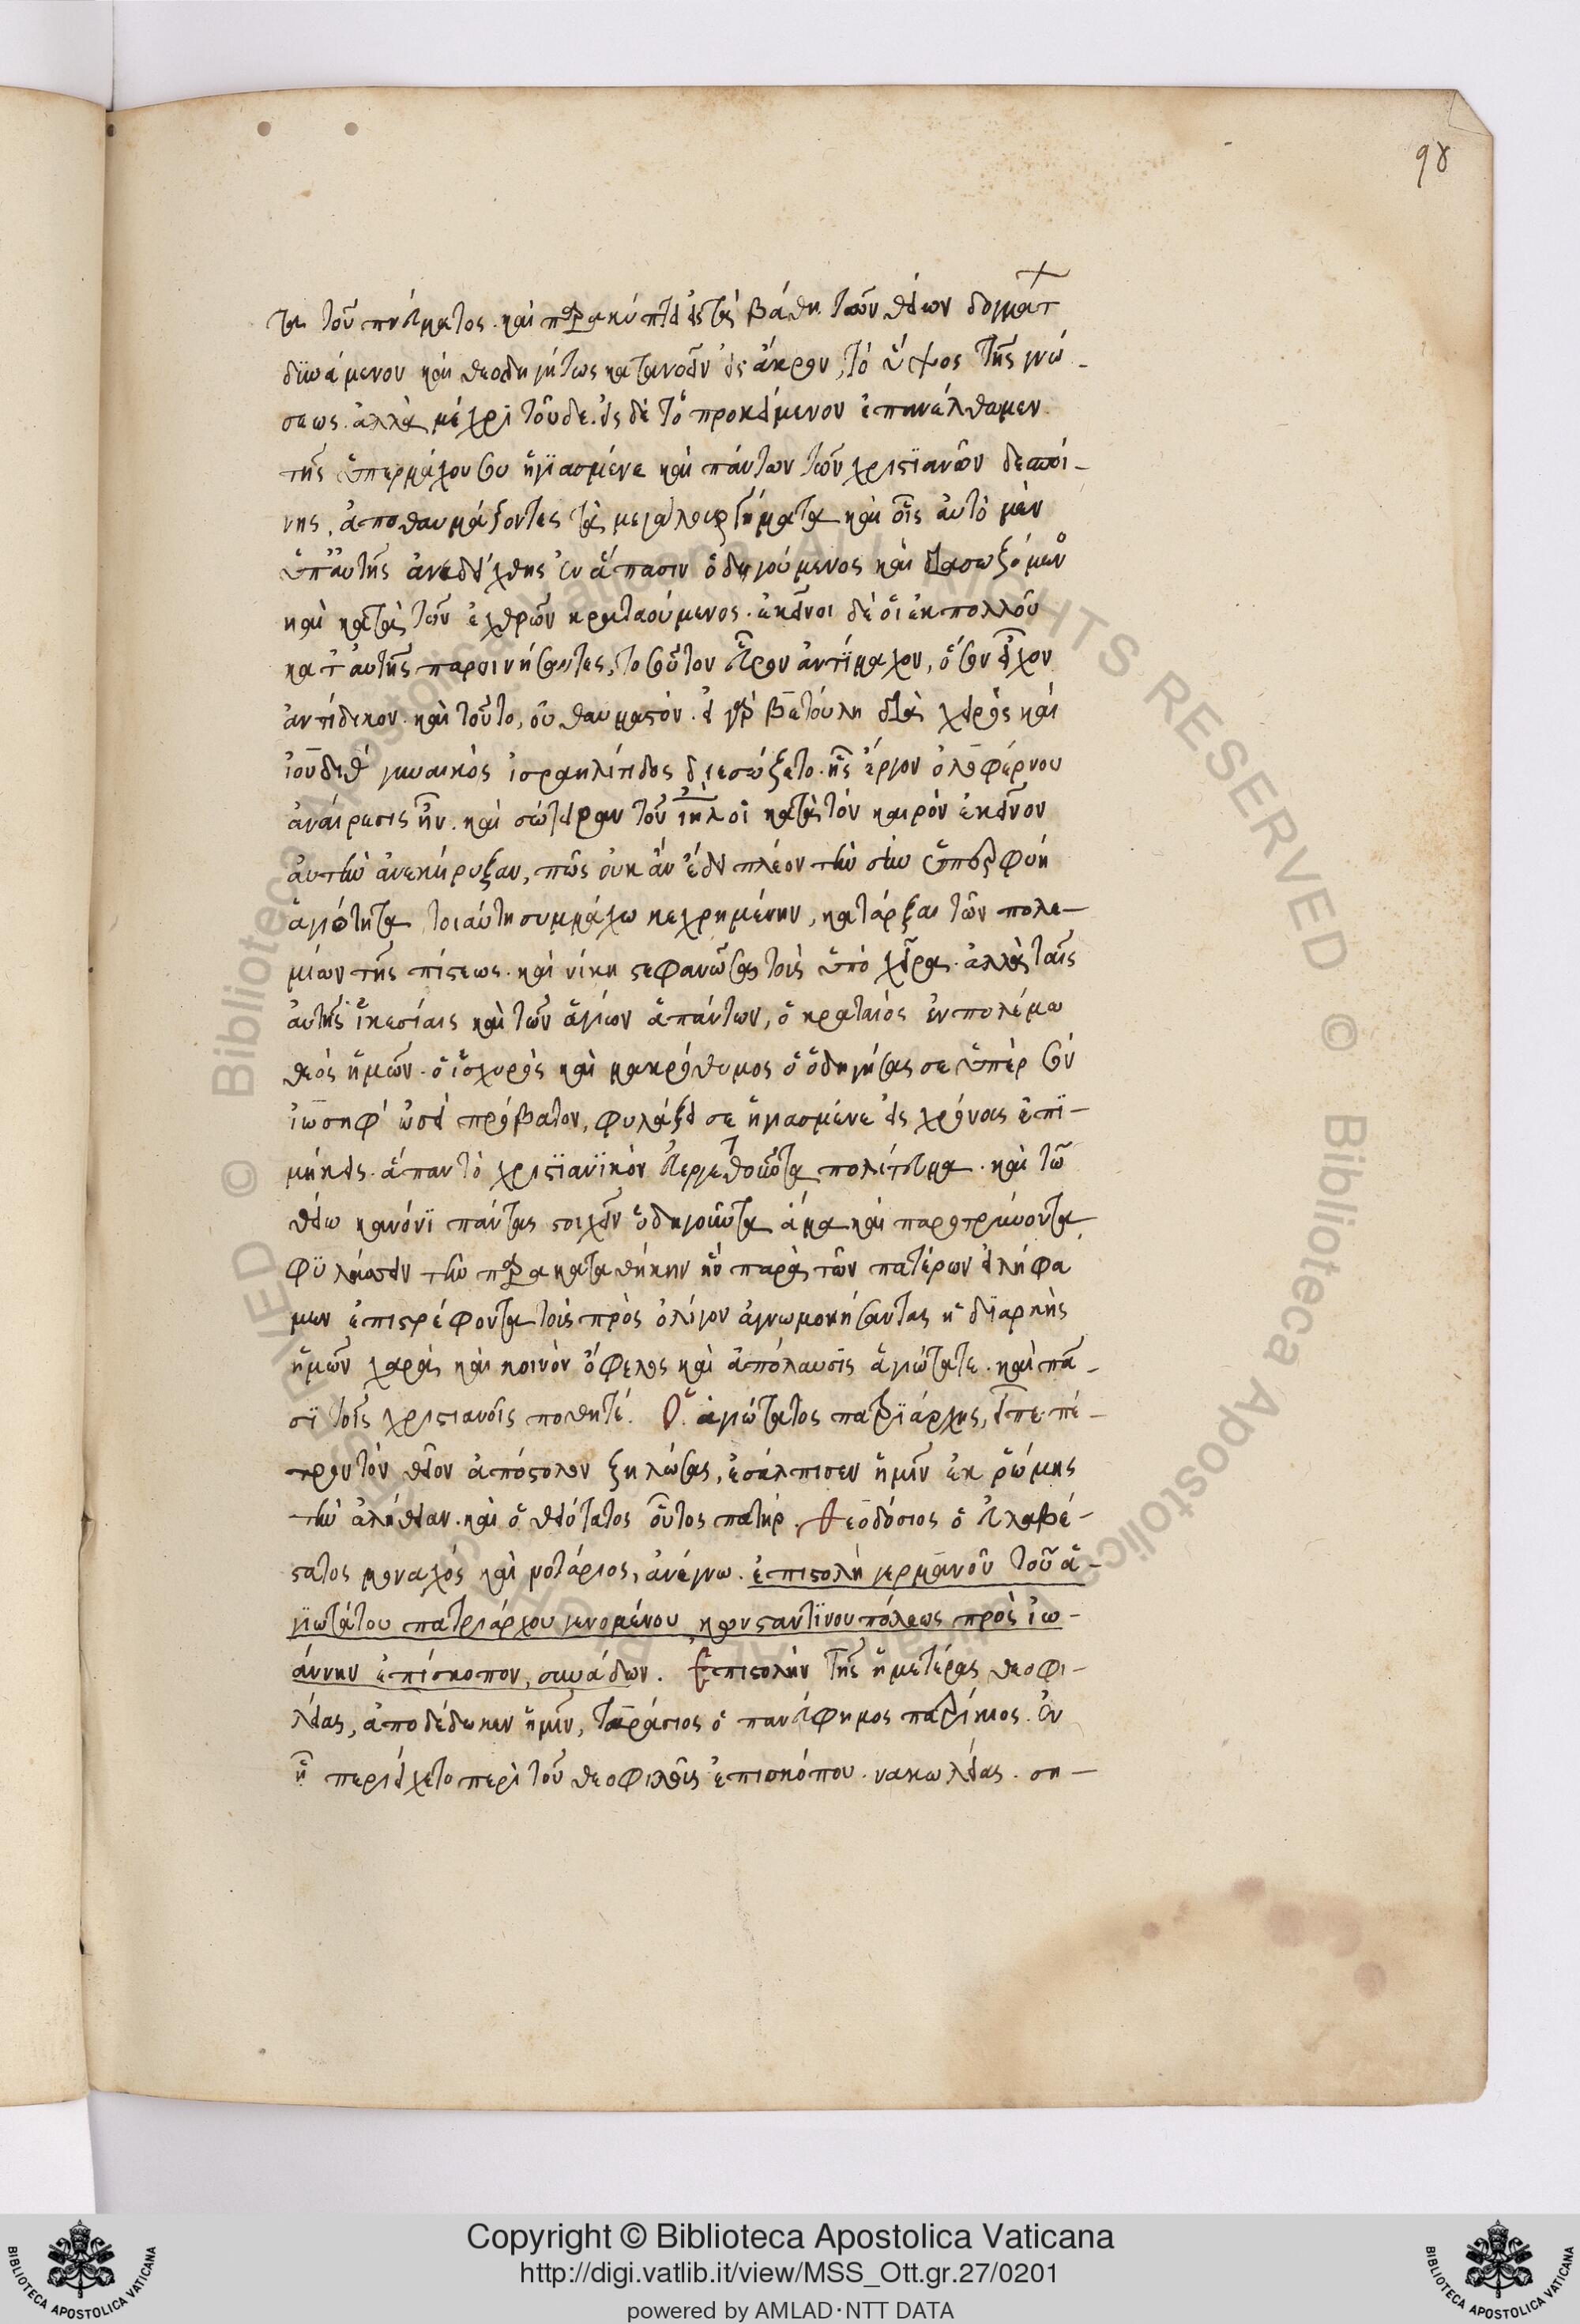 98
τα τοῦ πνεύματος. καὶ παρακύπτει εἰς τὰ βάθη τῶν θείων δογμάτ
δυνάμενον καὶ θεοδηγήτως κατανοεῖν εἰς ἄκρον, τὸ ὕψος τῆς γνώ-
σεως. ἀλλὰ μέχρι τοῦδε. εἰς δὲ τὸ προκείμενον ἐπανέλθωμεν
τῆς ὑπερμάχου σου ἡγιασμένε καὶ πάντων τῶν χριστιανῶν δεσποί-
νης, ἀποθαυμάζοντες τὰ μεγαλουργήματα καὶ οἷς αὐτὸ μὲν
ὑπ' αὐτῆς ἀνεδείχθης ἐν ἅπασιν ὁδηγούμενος καὶ διασωζόμενος
καὶ κατὰ τῶν ἐχθρῶν κραταιούμενος. ἐκεῖνοι δὲ οἱ ἐκ πολλοῦ
κατ' αὐτῆς παροινήσαντες, τοσοῦτον εὗρον ἀντίμαχον, ὅσον εἶχον
ἀντίδικον. καὶ τοῦτο, οὐ θαυμαστόν. εἰ γὰρ βετούλη διὰ χειρὸς καὶ
ἰουδιθ γυναικὸς ἰσραηλίτιδος διεσώζετο. ἧς ἔργον ὀλοφέρνου
ἀναίρεσις ἦν. καὶ σώτειραν τοῦ ἰηλ οἱ κατὰ τὸν καιρὸν ἐκεῖνον
αὐτὴν ἀνεκήρυξαν, πῶς οὐκ ἂν ἔδει πλέον τὴν σὴν ὑπερφυῆ
ἁγιότητα τοιαύτη συμμάχω κεχρημένην, κατάρξαι τῶν πολε-
μίων τῆς πίστεως. καὶ νίκη στεφανῶσαι τοὺς ὑπὸ χεῖρα. ἀλλὰ ταῖς
αὐτῆς ἱκεσίαις καὶ τῶν ἁγίων ἁπάντων, ὁ κραταιός ἐν πολέμω
θεὸς ἡμῶν. ὁ ἰσχυρὸς καὶ μακρόθυμος ὁ ὁδηγήσας σε ὑπὲρ τὸν
ἰωσηφ' ὡσεὶ πρόβατον, φυλάξει σε ἡγιασμένε εἰς χρόνους ἐπι-
μήκεις. ἅπαν τὸ χριστιανϊκὸν εὐεργετοῦντα πολίτευμα. καὶ τῶ
θείω κανόνϊ πάντας στοιχεῖν ὁδηγοῦντα ἅμα καὶ παροτρύνοντα
φϋλάσσειν τὴν παρακαταθήκην ἣν παρὰ τῶν πατέρων εἰλήφα
μεν ἐπιστρέφοντα τοὺς πρὸς ὀλίγον ἀγνωμονήσαντας ἡ διαρκὴς
ἡμῶν χαρὰ καὶ κοινὸν ὄφελος καὶ ἀπόλαυσις ἁγιώτατε. καὶ πᾶ-
σϊ τοῖς χριστιανοῖς ποθητέ. Ὁ ἁγιώτατος πατριάρχης, εἶπε. πέ-
τρον τὸν θεῖον ἀπόστολον ζηλώσας, ἐσάλπισεν ἡμῖν ἐκ ῥώμης
τὴν ἀλήθειαν. καὶ ὁ θειότατος οὗτος πατήρ. Θεοδόσιος ὁ εὐλαβέ-
στατος μοναχός καὶ νοτάριος, ἀνέγνω. ἐπιστολὴ γερμανοῦ τοῦ ἁ-
γϊωτάτου πατριάρχου γενομένου κωνσταντϊνουπόλεως πρὸς ἰω-
άννην ἐπίσκοπον, συνάδων. Ἐπιστολὴν τῆς ἡμετέρας θεοφι-
λείας, ἀποδέδωκεν ἡμῖν, ταράσιος ὁ πανεύφημος πατρίκιος. ἐν
ἧ περιείχετο περὶ τοῦ θεοφιλοῦς ἐπισκόπου. νακωλείας. ση-
Copyright © Biblioteca Apostolica Vaticana
http://digi.vatlib.it/view/MSS_Ott.gr.27/0201
powered by AMLAD·NTT DATA